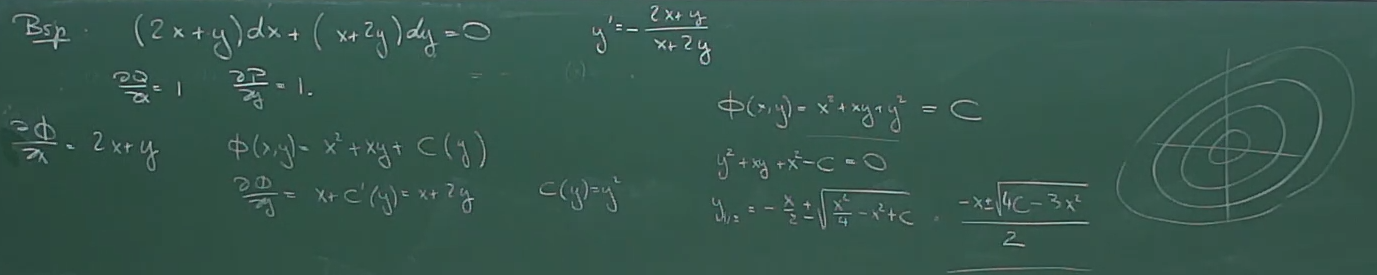 Bsp. (2x+y)dx+(x+2y)dy=0 y'=-\frac{2x+y}{x+2y}
\frac{∂Q}{∂x}=1 \frac{∂P}{∂y}=1.
\frac{∂Φ}{∂x}=2x+y Φ(x,y)=x²+xy+C(y)
\frac{∂Φ}{∂y}=x+C'(y)=x+2y C(y)=y²
Φ(x,y)=x²+xy+y²=C
y²+xy+x²-C=0
y_{1,2}=-\frac{x}{2}±\sqrt{\frac{x²}{4}-x²+C}=\frac{-x±\sqrt{4C-3x²}}{2}